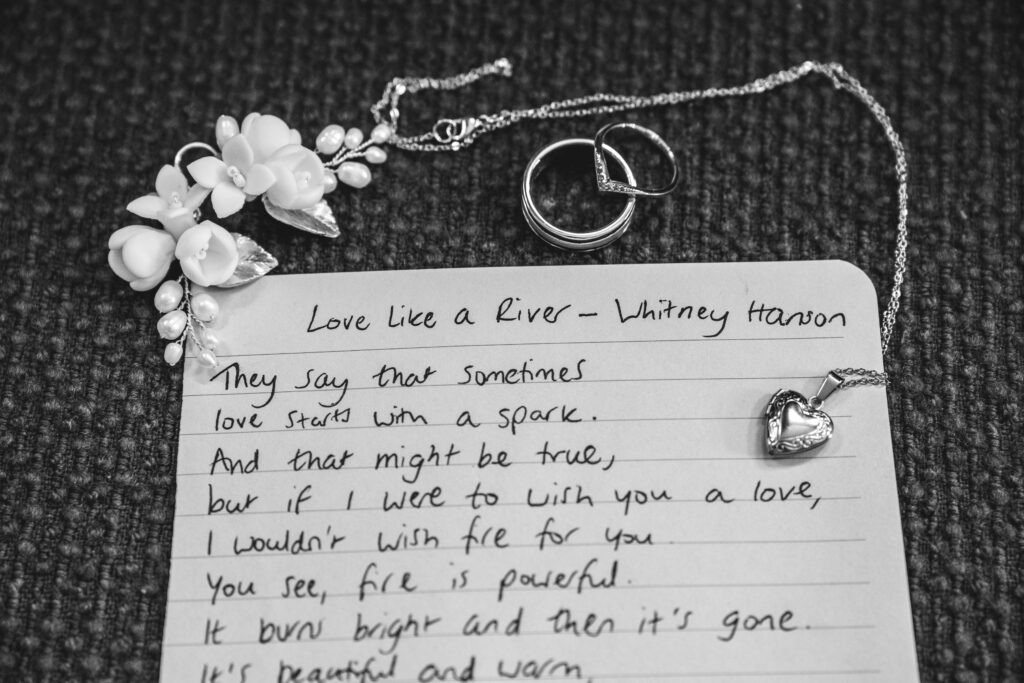 Love Like a River – Whitney Hanson
They say that sometimes
love starts with a spark.
And that might be true,
but if I were to wish you a love,
I wouldn't wish fire for you.
You see, fire is powerful.
It burns bright and then it's gone.
It's beautiful and warm,